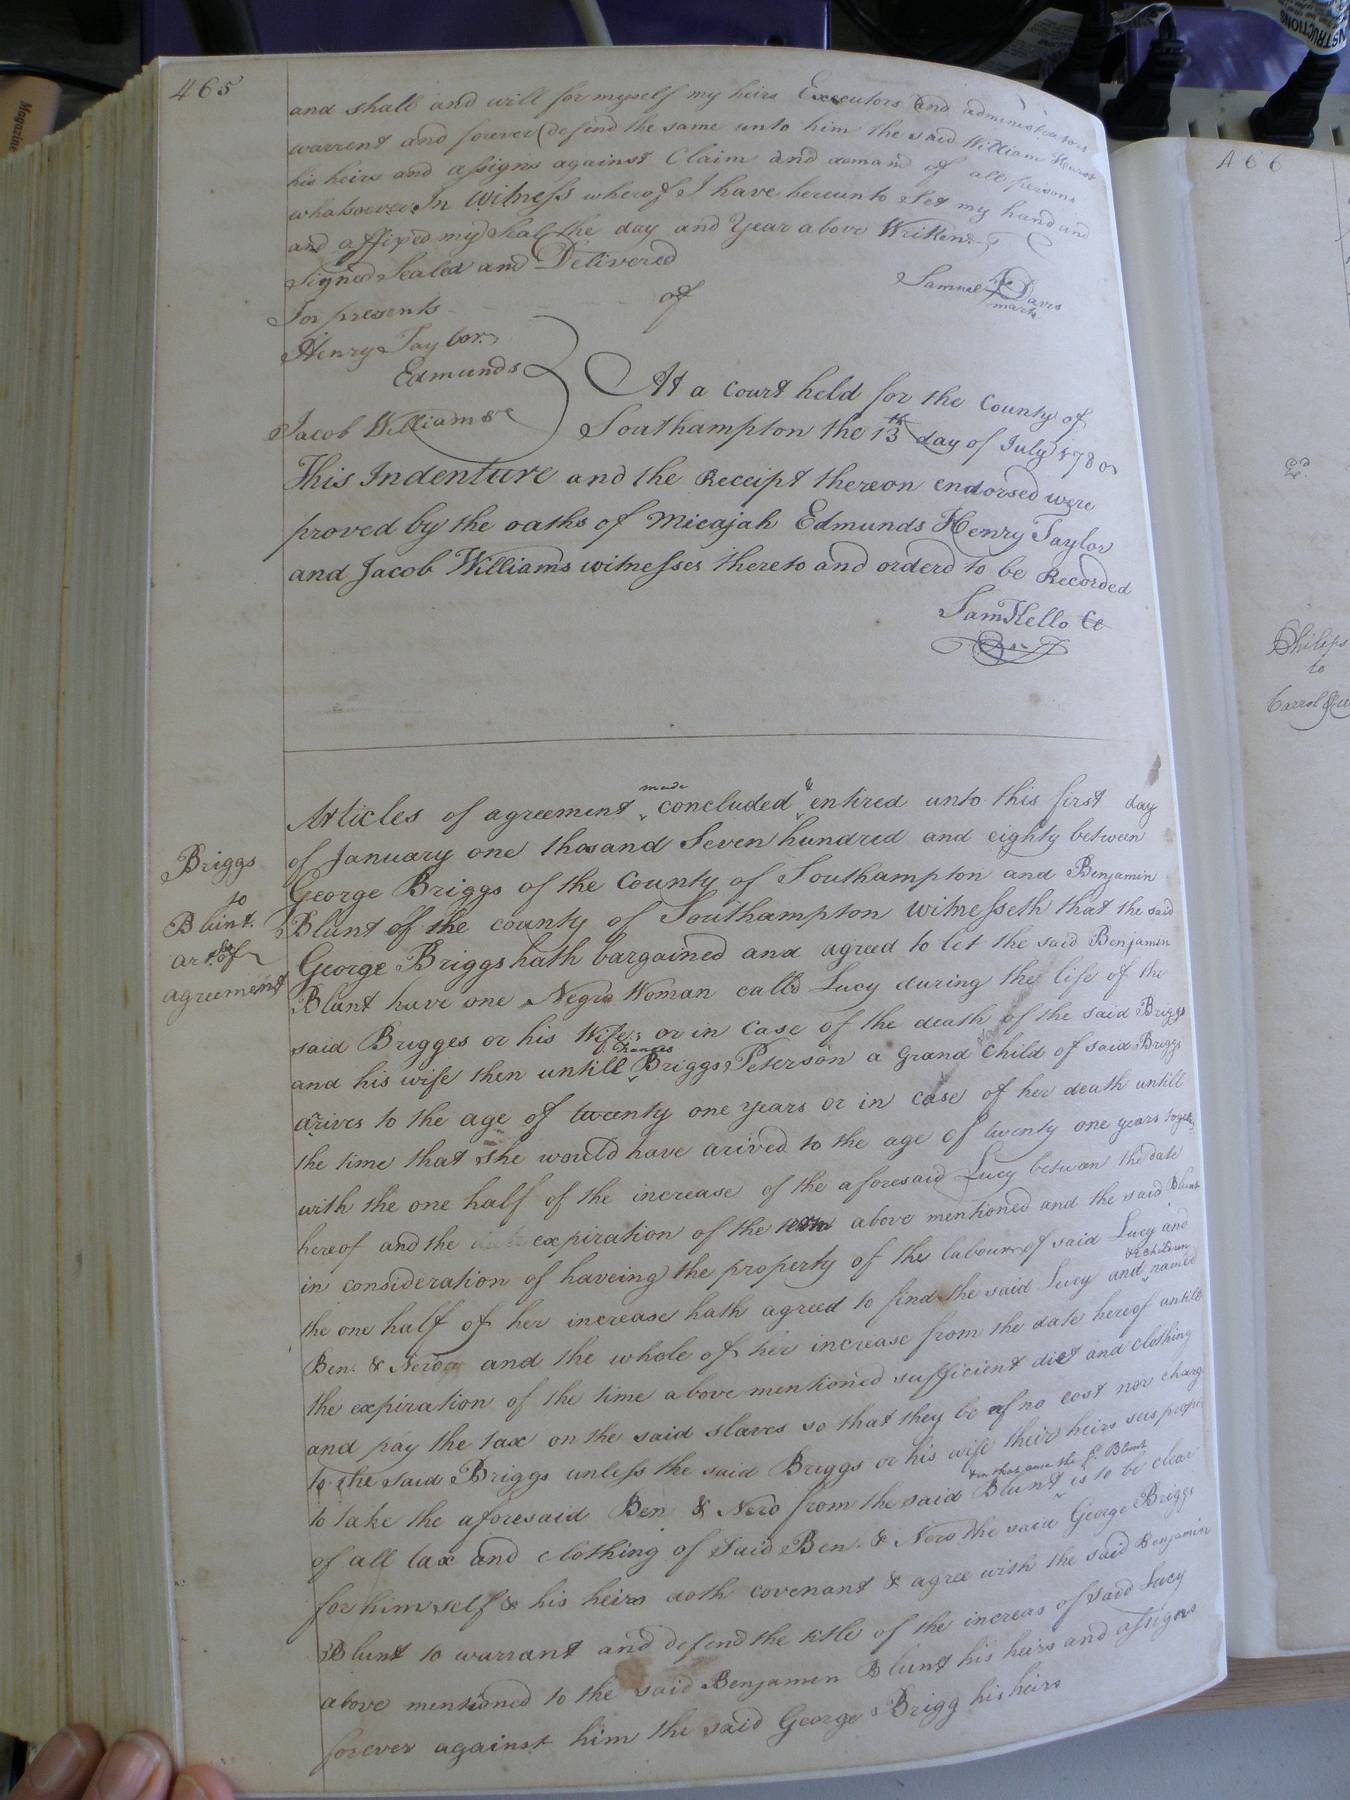 465
and shall and will for myself my heirs Executors and administrators
warrent and forever defend the same unto him the said William Hurst
his heirs and assigns against Claim and demand of all persons
whatsoever In Witness whereof I have hereunto Set my hand and
and affixed my Seal the day and Year above Written
Signed Sealed and Delivered
Samuel his Davis
mark
In presents of
Henry Taylor
Edmunds
Jacob Williams
At a Court held for the County of
Southampton the 13th day of July 1780
This Indenture and the Receipt thereon endorsed were
proved by the oaths of Micajah Edmunds Henry Taylor
and Jacob Williams witnesses thereto and orderd to be Recorded
Sam Kello Cc
Briggs
to
Blunt
arts of
agreement
Articles of agreement made concluded & entired unto this first day
of January one thosand Seven hundred and eighty between
George Briggs of the County of Southampton and Benjamin
Blunt of the county of Southampton witnesseth that the said
George Briggs hath bargained and agreed to let the said Benjamin
Blunt have one Negro Woman calld Lucy during the life of the
said Brigges or his Wife; or in Case of the death of the said Briggs
and his wife then untill Frances Briggs Peterson a Grand Child of said Briggs
arives to the age of twenty one years or in case of her death untill
the time that she would have arived to the age of twenty one years together
with the one half of the increase of the aforesaid Lucy betwen the date
hereof and the expiration of the term above mentioned and the said Blunt
in consideration of haveing the property of the labour of said Lucy and
the one half of her increase hath agreed to find the said Lucy and & children named
Ben & Nero and the whole of her increase from the date hereof untill
the expiration of the time above mentioned sufficient diet and clothing
and pay the tax on the said slaves so that they be of no cost nor charg
to the said Briggs unless the said Briggs or his wife their heirs sees proper
to take the aforesaid Ben & Nero from the said Blunt & in that case the sd. Blunt is to be clear
of all tax and clothing of Said Ben & Nero the said George Briggs
for himself & his heirs doth covenant & agree with the said Benjamin
Blunt to warrant and defend the title of the increas of said Lucy
above mentioned to the said Benjamin Blunt his heirs and assigns
forever against him the said George Brigg his heirs
466
Philips
to